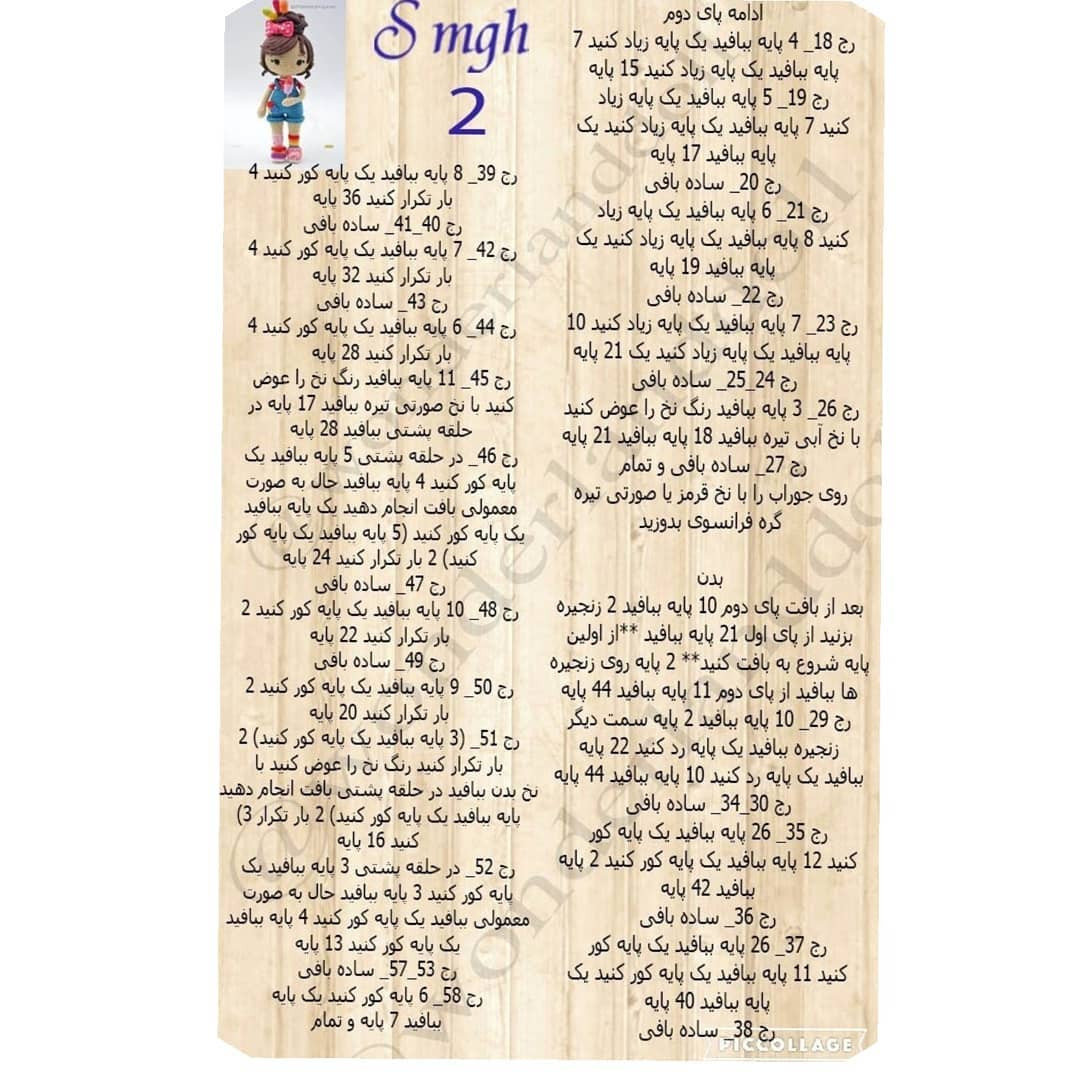 S mgh
2
ادامه پای دوم
رج 18_ 4 پایه ببافید یک پایه زیاد کنید 7
پایه ببافید یک پایه زیاد کنید 15 پایه
رج 19_ 5 پایه ببافید یک پایه زیاد
کنید 7 پایه ببافید یک پایه زیاد کنید یک
پایه ببافید 17 پایه
رج 20_ ساده بافی
رج 21_ 6 پایه ببافید یک پایه زیاد
کنید 8 پایه ببافید یک پایه زیاد کنید یک
پایه ببافید 19 پایه
رج 22_ ساده بافی
رج 23_ 7 پایه ببافید یک پایه زیاد کنید 10
پایه ببافید یک پایه زیاد کنید یک 21 پایه
رج 24_25_ ساده بافی
رج 26_ 3 پایه ببافید رنگ نخ را عوض کنید
با نخ آبی تیره ببافید 18 پایه ببافید 21 پایه
رج 27_ ساده بافی و تمام
روی جوراب را با نخ قرمز یا صورتی تیره
گره فرانسوی بدوزید
بدن
بعد از بافت پای دوم 10 پایه ببافید 2 زنجیره
بزنید از پای اول 21 پایه ببافید **از اولین
پایه شروع به بافت کنید** 2 پایه روی زنجیره
ها ببافید از پای دوم 11 پایه ببافید 44 پایه
رج 29_ 10 پایه ببافید 2 پایه سمت دیگر
زنجیره ببافید یک پایه رد کنید 22 پایه
ببافید یک پایه رد کنید 10 پایه ببافید 44 پایه
رج 30_34_ ساده بافی
رج 35_ 26 پایه ببافید یک پایه کور
کنید 12 پایه ببافید یک پایه کور کنید 2 پایه
ببافید 42 پایه
رج 36_ ساده بافی
رج 37_ 26 پایه ببافید یک پایه کور
کنید 11 پایه ببافید یک پایه کور کنید یک
پایه ببافید 40 پایه
رج 38_ ساده بافی
رج 39_ 8 پایه ببافید یک پایه کور کنید 4
بار تکرار کنید 36 پایه
رج 40_41_ ساده بافی
رج 42_ 7 پایه ببافید یک پایه کور کنید 4
بار تکرار کنید 32 پایه
رج 43_ ساده بافی
رج 44_ 6 پایه ببافید یک پایه کور کنید 4
بار تکرار کنید 28 پایه
رج 45_ 11 پایه ببافید رنگ نخ را عوض
کنید با نخ صورتی تیره ببافید 17 پایه در
حلقه پشتی ببافید 28 پایه
رج 46_ در حلقه پشتی 5 پایه ببافید یک
پایه کور کنید 4 پایه ببافید حال به صورت
معمولی بافت انجام دهید یک پایه ببافید
یک پایه کور کنید (5 پایه ببافید یک پایه کور
کنید) 2 بار تکرار کنید 24 پایه
رج 47_ ساده بافی
رج 48_ 10 پایه ببافید یک پایه کور کنید 2
بار تکرار کنید 22 پایه
رج 49_ ساده بافی
رج 50_ 9 پایه ببافید یک پایه کور کنید 2
بار تکرار کنید 20 پایه
رج 51_ (3 پایه ببافید یک پایه کور کنید) 2
بار تکرار کنید رنگ نخ را عوض کنید با
نخ بدن ببافید در حلقه پشتی بافت انجام دهید
پایه ببافید یک پایه کور کنید) 2 بار تکرار 3)
کنید 16 پایه
رج 52_ در حلقه پشتی 3 پایه ببافید یک
پایه کور کنید 3 پایه ببافید حال به صورت
معمولی ببافید یک پایه کور کنید 4 پایه ببافید
یک پایه کور کنید 13 پایه
رج 53_57_ ساده بافی
رج 58_ 6 پایه کور کنید یک پایه
ببافید 7 پایه و تمام
PICCOLLAGE